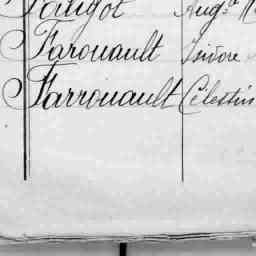 Faugot Aug.te
Farouault Isidore
Farrouault Célestin